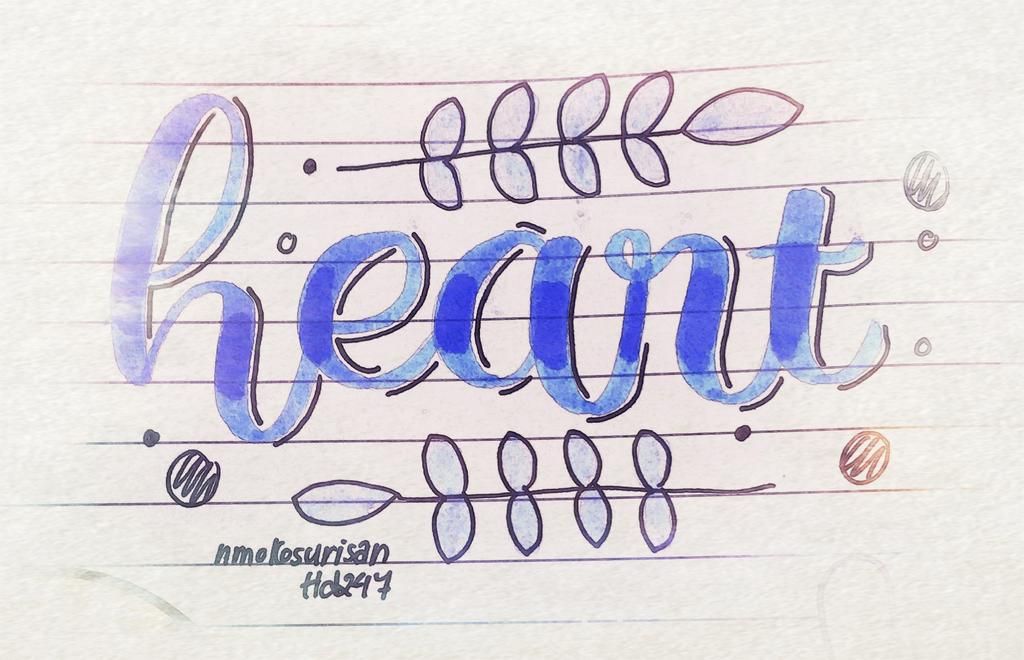 heart
nmokosurisan
Hcb247